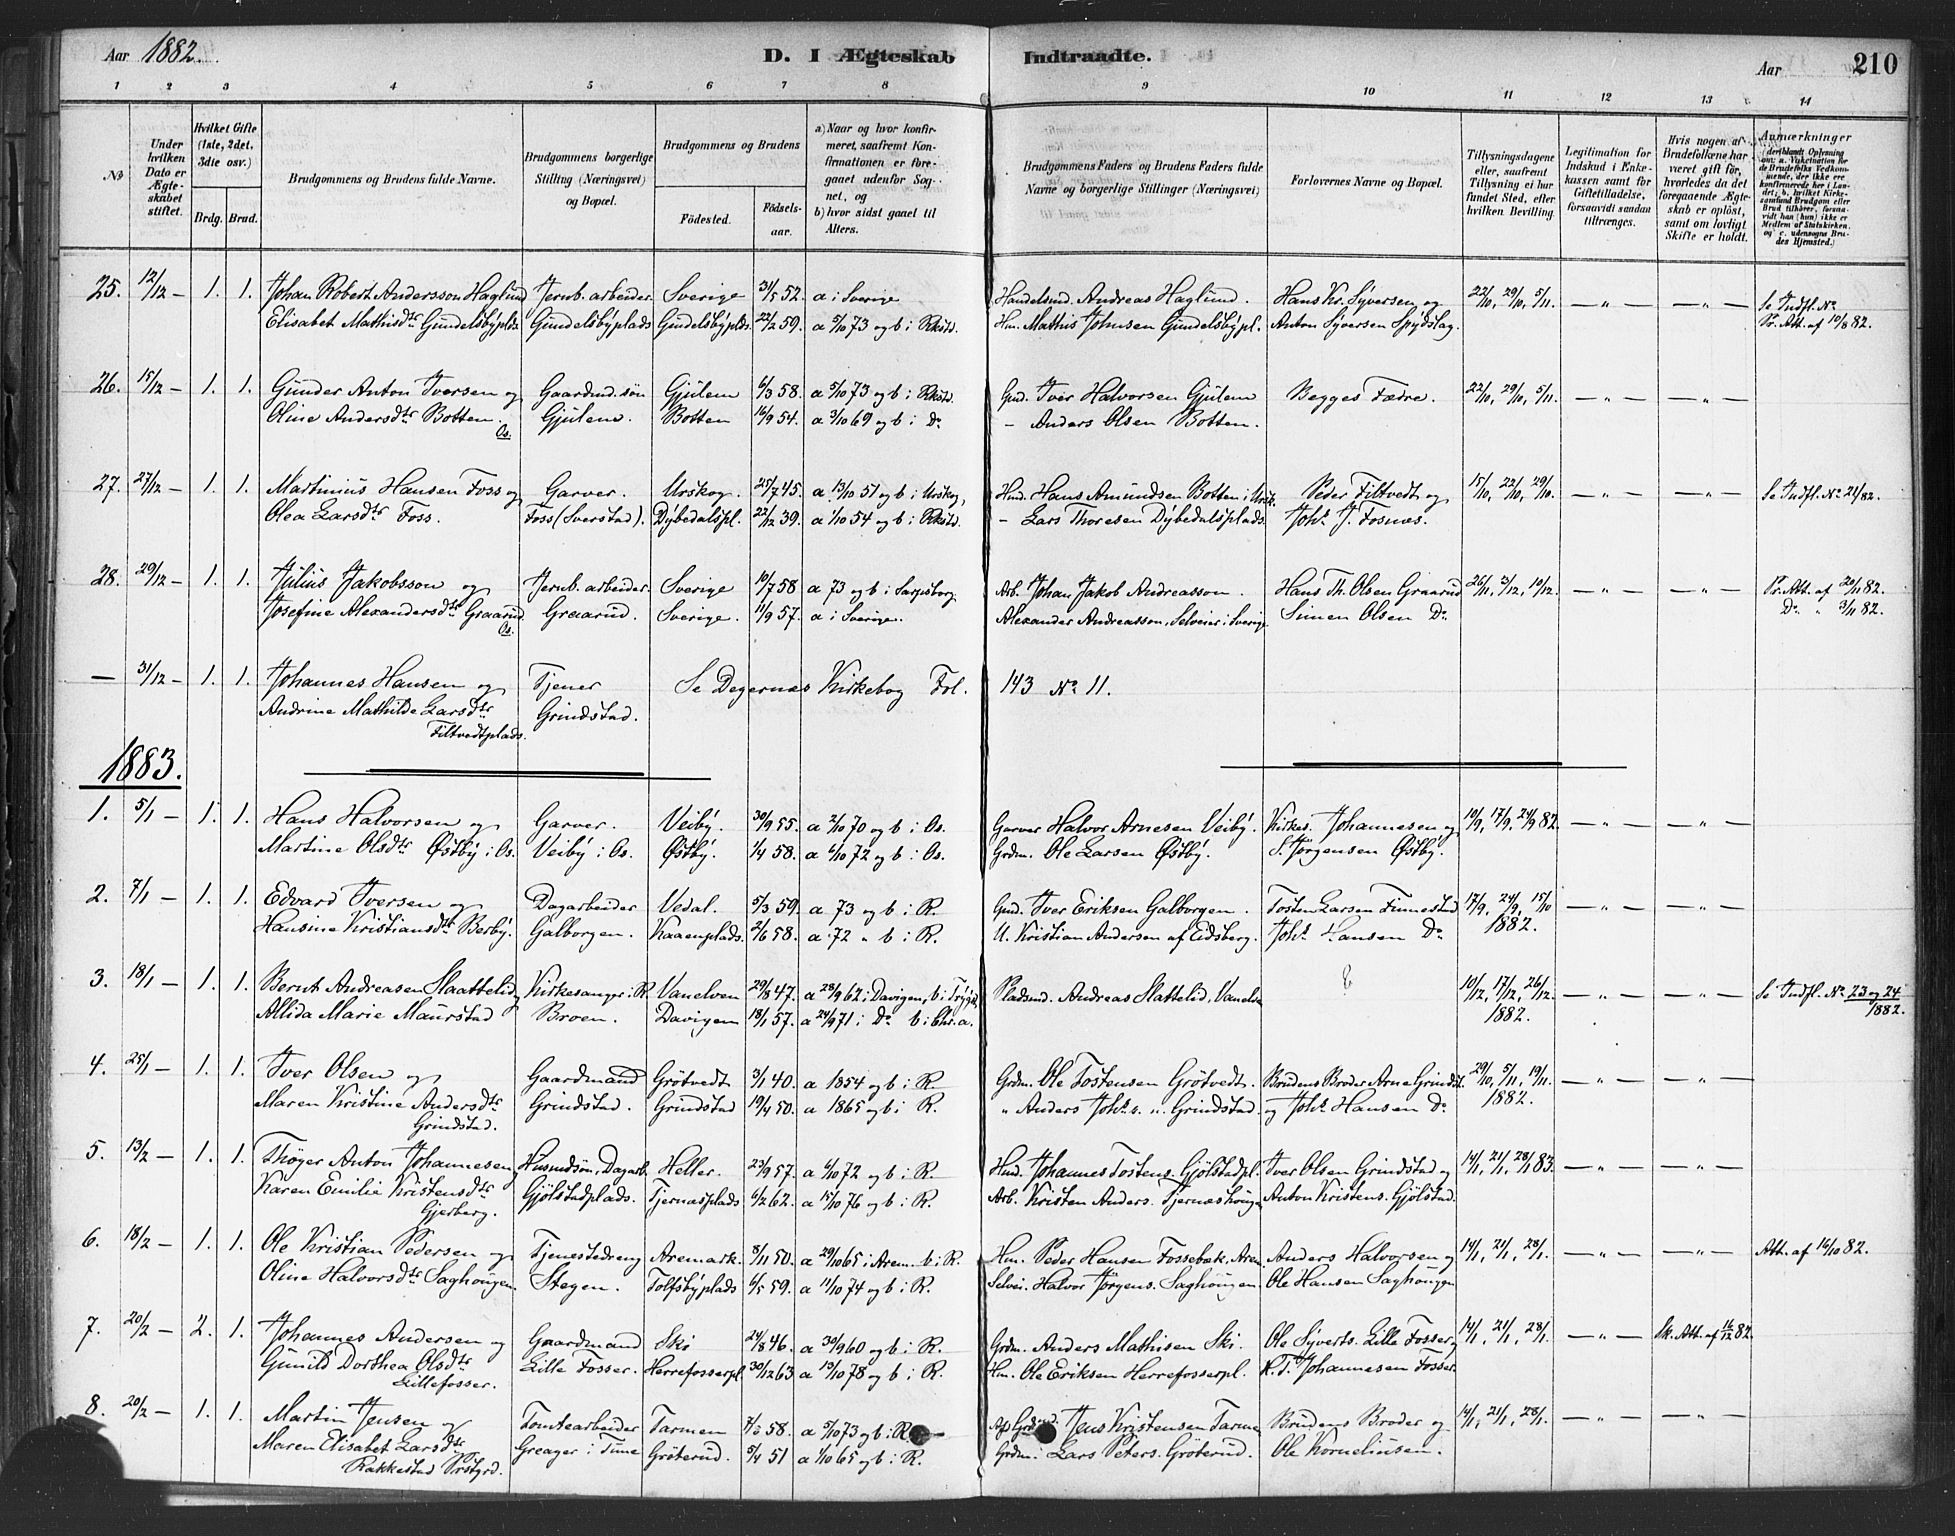 Aar 1882. D. I Ægteskab Indtraadte. Aar 210
1 2 3 4 5 6 7 8 9 10 11 12 13 14
No
Under hvilken Dato er Ægteskabet stiftet.
Hvilket Gifte (1ste, 2det, 3die osv.)
Brdg. Brud.
Brudgommens og Brudens fulde Navne.
Brudgommens borgerlige Stilling (Næringsvei) og Bopæl.
Brudgommens og Brudens
Fødested. Fødselsaar.
a) Naar og hvor konfirmeret, saafremt Konfirmationen er foregaaet udenfor Sognet, og
b) hvor sidst gaaet til Alters.
Brudgommens Faders og Brudens Faders fulde Navne og borgerlige Stillinger (Næringsvei)
Forlovernes Navne og Bopæl.
Tillysningsdagene eller, saafremt Tillysning ei har fundet Sted, efter hvilken Bevilling.
Legitimation for Indskud i Enkekassen samt for Giftetilladelse, forsaavidt saadan tiltrænges.
Hvis nogen af Brudefolkene har været gift før, hvorledes da det foregaaende Ægteskab er opløst, samt om lovligt Skifte er holdt.
Anmærkninger (deriblandt Oplysning om: a. Vaksination for de Brudefolks Vedkommende, der ikke ere konfirmerede her i Landet; b. hvilket Kirkesamfund Brudgom eller Brud tilhører, forsaavidt han (hun) ikke er Medlem af Statskirken. og c. udensogns Brudes Hjemsted.)
25. 12/12 — 1. 1. Johan Robert Andersson Haglund Jernb. arbeider. Sverige 31/5 52. a i Sverige Handelsmd. Andreas Haglund. Hans Kr. Syversen og 22/10, 29/10, 5/11. — „ — — „ — Se Indfl. No
Elisabet Mathisdtr Gundelsbyplds. Gundelsbyplads Gundelsbyplds. 22/2 59. a 5/10 73 og b i Rkstd. Hm. Mathis Johnsen Gundelsbypl. Anton Syversen Spydslag. Pr. Att. af 10/8 82.
26. 15/12 — 1. 1. Gunder Anton Iversen og Gaardmd. søn Gjulem 6/3 58. a 5/10 73 og b i Rkstd. Gmd. Iver Halvorsen Gjulem Begges Fædre. 22/10, 29/10, 5/11. — „ — — „ —
Oline Andersdtr Botten. Os. Gjulem. Botten 16/9 54. a 3/10 69 og b i Do — Anders Olsen Botten.
27. 27/12 — 1. 1. Martinius Hansen Foss og Garver. Urskog. 25/7 45. a 13/10 51 og b i Urskog, Hmd. Hans Amundsen Botten i Ursk. Peder Filtvedt og 15/10, 22/10, 29/10. — „ — — „ — Se Indfl. No 21/82.
Olea Larsdtr Foss. Foss (Sverstad). Dybedalspl. 22/12 39. a 1/10 54 og b i Rkstd. — Lars Thoresen Dybedalsplads. Johs. J. Fosnæs.
28. 29/12 — 1. 1. Julius Jakobsson og Jernb. arbeider. Sverige 10/7 58 a 73 og b i Sarpsborg Arb. Johan Jakob Andreasson. Hans Th. Olsen Graarud 26/11, 3/12, 10/12. — „ — — „ — Pr. Att. af 20/11 82.
Josefine Alexandersdtr Graarud. Os. Graarud. Sverige. 11/9 57. a i Sverige. Alexander Andreasson, Selveier i Sverige Simen Olsen Do Do „ 3/11 82.
— 31/12 — 1. 1. Johannes Hansen og Tjener Se Degernæs Kirkebog Fol. 143 No 11.
Andrine Mathilde Larsdtr Grindstad.
Filtvedtplads.
1883.
1. 5/1 — 1. 1. Hans Halvorsen og Garver. Veiby. 30/9 55. a 2/10 70 og b i Os. Garver Halvor Arnesen Veiby. Kirkes. Johannesen og 10/9, 17/9, 24/9 82. — „ — — „ —
Martine Olsdtr Østby i Os. Veiby i Os. Østby. 1/4 58. a 6/10 72 og b i Os. Grdm. Ole Larsen Østby. S. Jørgensen Østby.
2. 7/1 — 1. 1. Edvard Iversen og Dagarbeider Vedal. 5/3 59. a 73 og b i R. Gmd. Iver Eriksen Galborgen. Tosten Larsen Finnestad 17/9, 24/9, 15/10 — „ — — „ —
Hansine Kristiansdtr Berby. Galborgen. Kaaenplads. 2/6 58. a 72 „ b i R. U. Kristian Andersen af Eidsberg. Johs. Hansen Do 1882.
3. 18/1 — 1. 1. Bernt Andreasen Slaattelid Kirkesanger i R. Vanelven 29/8 47. a 28/9 62 i Davigen, b i Trygst. Pladsmd. Andreas Slattelid, Vanelven 10/12, 17/12, 26/12. — „ — — „ — Se Indfl. No 23 og 24
Allida Marie Maurstad Broen. Davigen 18/1 57. a 24/9 71 i Do b i Chr.a. 1882. 1882.
4. 25/1 — 1. 1. Iver Olsen og Gaardmand Grøtvedt 3/1 40. a 1854 og b i R. Grdm. Ole Tostensen Grøtvedt. Brudens Broder Arne Grindst. 29/10, 5/11, 19/11. — „ — — „ —
Maren Kristine Andersdtr Grindstad. Grindstad 19/4 50. a 1865 og b i R. „ Anders Johs. „ Grindstad. og Johs. Hansen Do 1882.
Grindstad.
5. 13/2 — 1. 1. Thøger Anton Johannesen Husmdsøn, Dagarb. Heller. 23/9 57. a 6/10 72 og b i R. Hmd. Johannes Tostens. Gjølstadpl. Iver Olsen Grindstad og 14/1, 21/1, 28/1 83. — „ — — „ —
Karen Emilie Kristensdtr Gjølstadplads. Tjernæsplads 6/2 62. a 15/10 76 og b i R. Arb. Kristen Anders. Tjernæshougen Anton Kristens. Gjølstad.
Gjerberg.
6. 18/2 — 1. 1. Ole Kristian Pedersen og Tjenestedreng Aremark. 8/11 50. a 29/10 65 i Arem. b i R. Hm. Peder Hansen Fossebæk, Arem. Anders Halvorsen og 14/1, 21/1, 28/1. — „ — — „ — Att. af 16/10 82.
Oline Halvorsdtr Saghougen. Stegen. Tolfsbyplads 6/5 59. a 11/10 74 og b i R. Selvei. Halvor Jørgens. Saghougen Ole Hansen Saghougen
7. 20/2 — 2. 1. Johannes Andersen og Gaardmand Ski 24/8 46. a 30/9 60 og b i R. Grdm. Anders Mathisen Ski. Ole Syverts. Lille Fosser og 14/1, 21/1, 28/1. — „ — Sk. Att. af 16/12 82.
Gunild Dorthea Olsdtr Lille Fosser. Herrefosserpl. 30/12 63 a 13/10 78 og b i R. Hm. Ole Eriksen Herrefosserpl. K. T. Johannesen Fosser.
Lillefosser.
8. 20/2 — 1. 1. Martin Jensen og Tomtearbeider Tarmen 7/3 58. a 5/10 73 og b i R. Jens Kristensen Tarmen Brudens Broder og 14/1, 21/1, 28/1. — „ — — „ —
Maren Elisabet Larsdtr Greager i Tune Grøterud. 5/4 51 a 1/10 65 og b i R. Grdm. Lars Peters. Grøterud. Ole Korneliusen.
Rakkestad Prstgrd.